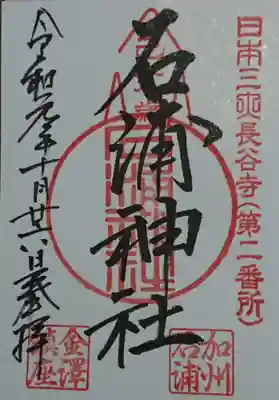 日本三大長谷寺(第二番所)
石浦神社
令和元年十月廿八日奉拝
加州
石浦
金澤
鎮座